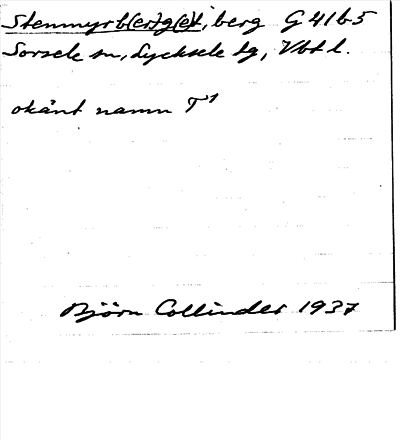 Stenmyrb(er)g(e)t, berg G 41 b 5
Sorsele sn, Lycksele tg, Vbt l.
okänt namn T¹
Björn Collinder 1937